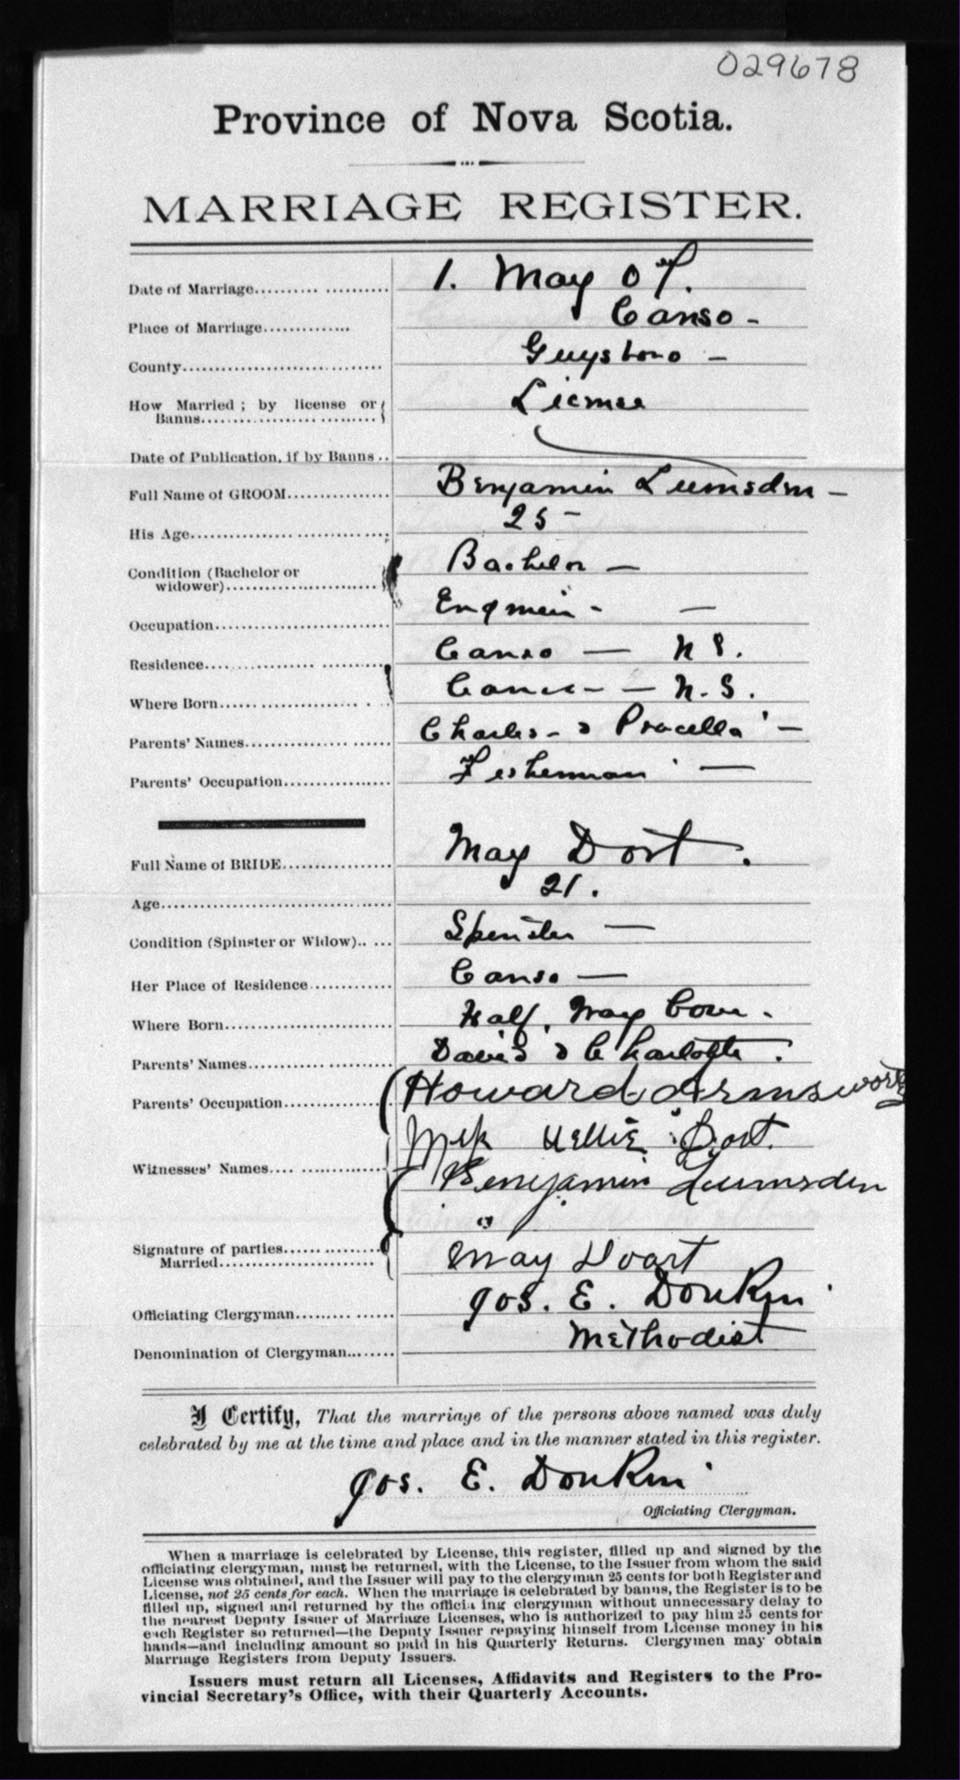 029678
Province of Nova Scotia.
MARRIAGE REGISTER.
Date of Marriage.................... 1. May 07.
Place of Marriage.............. Canso -
County................................ Guysboro -
How Married ; by license or { License
Banns..............................
Date of Publication, if by Banns ..
Full Name of GROOM................ Benjamin Lumsden -
His Age................................ 25 -
Condition (Bachelor or Bachelor -
widower)..........................
Occupation............................
Residence............................ Canso — N S.
Where Born.......................... Canso - — N. S.
Parents' Names...................... Charles - & -
Parents' Occupation................ Fisherman —
Full Name of BRIDE................ May Dort.
Age.................................... 21.
Condition (Spinster or Widow)..... Spinster —
Her Place of Residence............ Canso —
Where Born.......................... Half Way Cove.
Parents' Names...................... David & Charlotte.
Parents' Occupation................ Howard Armsworthy
Nellie Dort.
Witnesses' Names....................
Benjamin Lumsden
Signature of parties................
Married............................ May Doart
Officiating Clergyman.............. Jos. E. Donkin
Denomination of Clergyman........ Methodist
I Certify, That the marriage of the persons above named was duly
celebrated by me at the time and place and in the manner stated in this register.
Jos. E. Donkin
Officiating Clergyman.
When a marriage is celebrated by License, this register, filled up and signed by the
officiating clergyman, must be returned, with the License, to the Issuer from whom the said
License was obtained, and the Issuer will pay to the clergyman 25 cents for both Register and
License, not 25 cents for each. When the marriage is celebrated by banns, the Register is to be
filled up, signed and returned by the officiating clergyman without unnecessary delay to
the nearest Deputy Issuer of Marriage Licenses, who is authorized to pay him 25 cents for
each Register so returned—the Deputy Issuer repaying himself from License money in his
hands—and including amount so paid in his Quarterly Returns. Clergymen may obtain
Marriage Registers from Deputy Issuers.
Issuers must return all Licenses, Affidavits and Registers to the Pro-
vincial Secretary's Office, with their Quarterly Accounts.